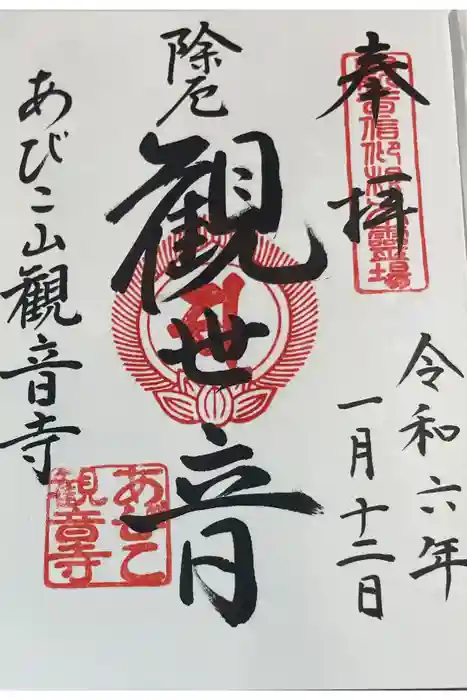 奉拝
令和六年
一月十二日
除厄
観世音
あびこ山観音寺
あびこ
観音寺